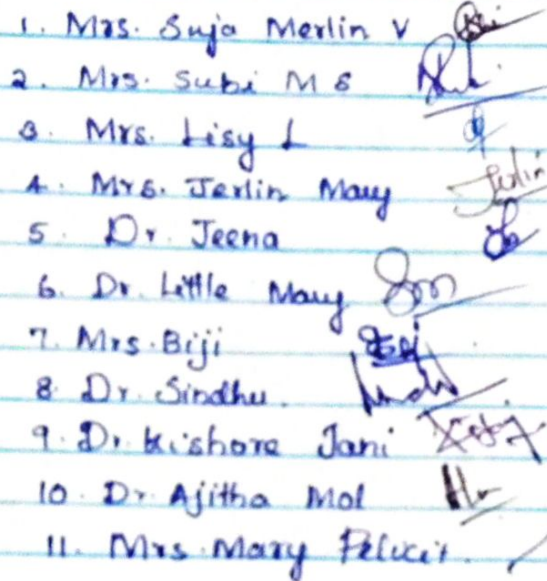 1. Mrs. Suja Merlin V
2. Mrs. Subi M S
3. Mrs. Lisy L
4. Mrs. Jerlin Mary Jerlin
5. Dr. Jeena
6. Dr. Little Mary
7. Mrs. Biji
8. Dr. Sindhu.
9. Dr. Kishore Jani
10. Dr. Ajitha Mol
11. Mrs. Mary